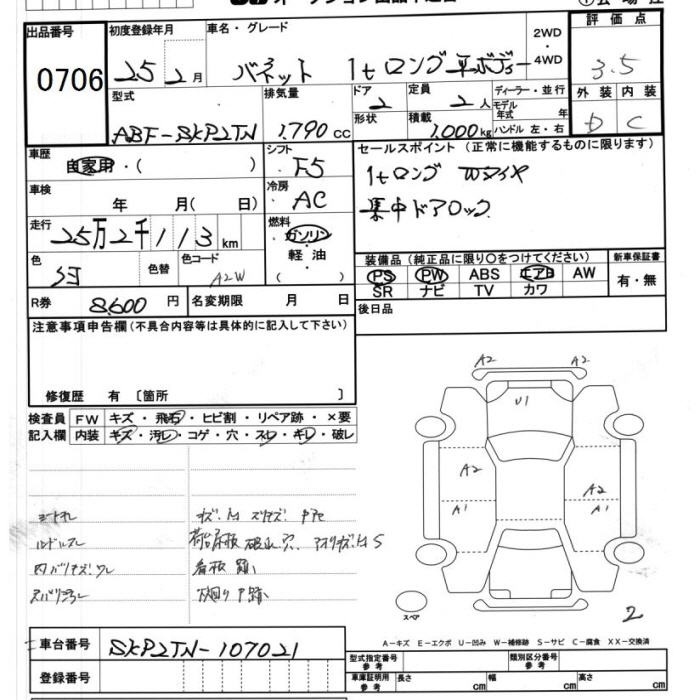 出品番号 初度登録年月 車名・グレード 2WD・4WD 評価点
0706 25年2月 バネット 1tロング 平ボデー 3.5
型式 排気量 ドア 定員 ディーラー・並行 外装 内装
ABF-SKP2TN 1,790cc 2 2人 モデル年式 年 D C
形状 積載 1,000kg ハンドル 左・右
車歴 自家用・( ) シフト F5 セールスポイント(正常に機能するものに限ります)
車検 年 月( 日) 冷房 AC 1tロング Wタイヤ
走行 25万2千113km 燃料 ガソリン・軽油 ( ) 集中ドアロック
色 色替 色コード 装備品(純正品に限り○をつけてください) 新車保証書
A2W PS PW ABS エアB AW 有・無
SR ナビ TV カワ
R券 8,600円 名変期限 月 日 後日品
注意事項申告欄(不具合内容等は具体的に記入して下さい)
修復歴 有 〔箇所 〕
検査員 FW キズ・飛石・ヒビ割・リペア跡・×要
記入欄 内装 キズ・汚レ・コゲ・穴・スレ・キレ・破レ
A2 A2
U1
A2 A2
A1 A1
スペア
2
車台番号 SKP2TN-107021
A-キズ E-エクボ U-凹み W-補修跡 S-サビ C-腐食 XX-交換済
登録番号
型式指定番号 参考 類別区分番号 参考
車庫証明用 参考 長さ cm 幅 cm 高さ cm